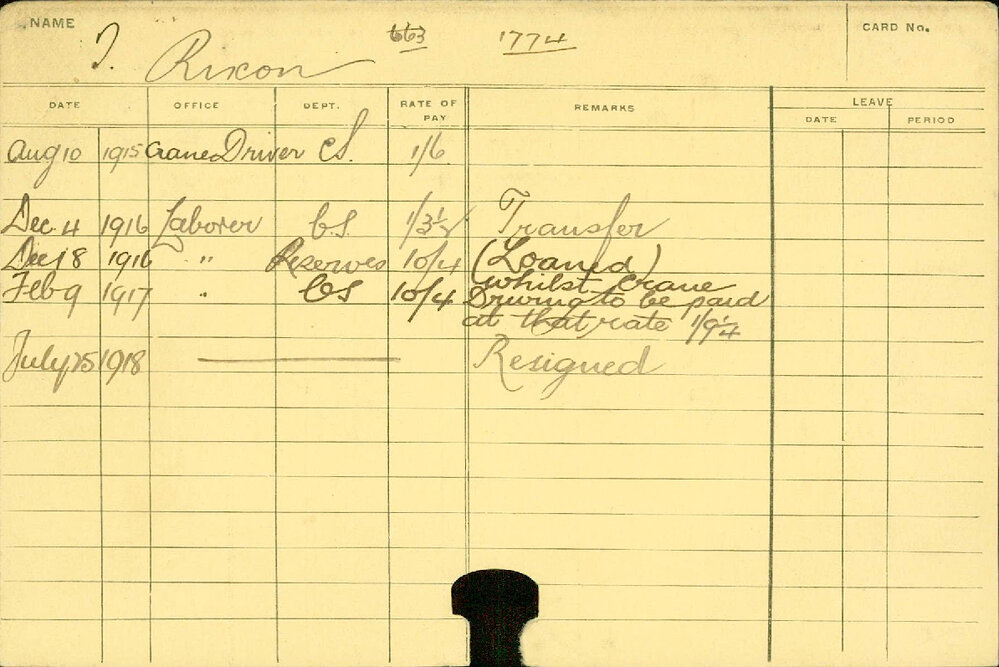 NAME 663 1774 CARD No.
J. Rixon
DATE OFFICE DEPT. RATE OF PAY REMARKS LEAVE
DATE PERIOD
Aug 10 1915 Crane Driver C.S. 1/6
Dec. 4 1916 Laborer C.S. 1/3½ Transfer
Dec 18 1916 " Reserves 10/4 (Loaned)
Feb 9 1917 " CS 10/4 whilst crane
Driving to be paid
at that rate 1/9¼
July 25 1918 Resigned